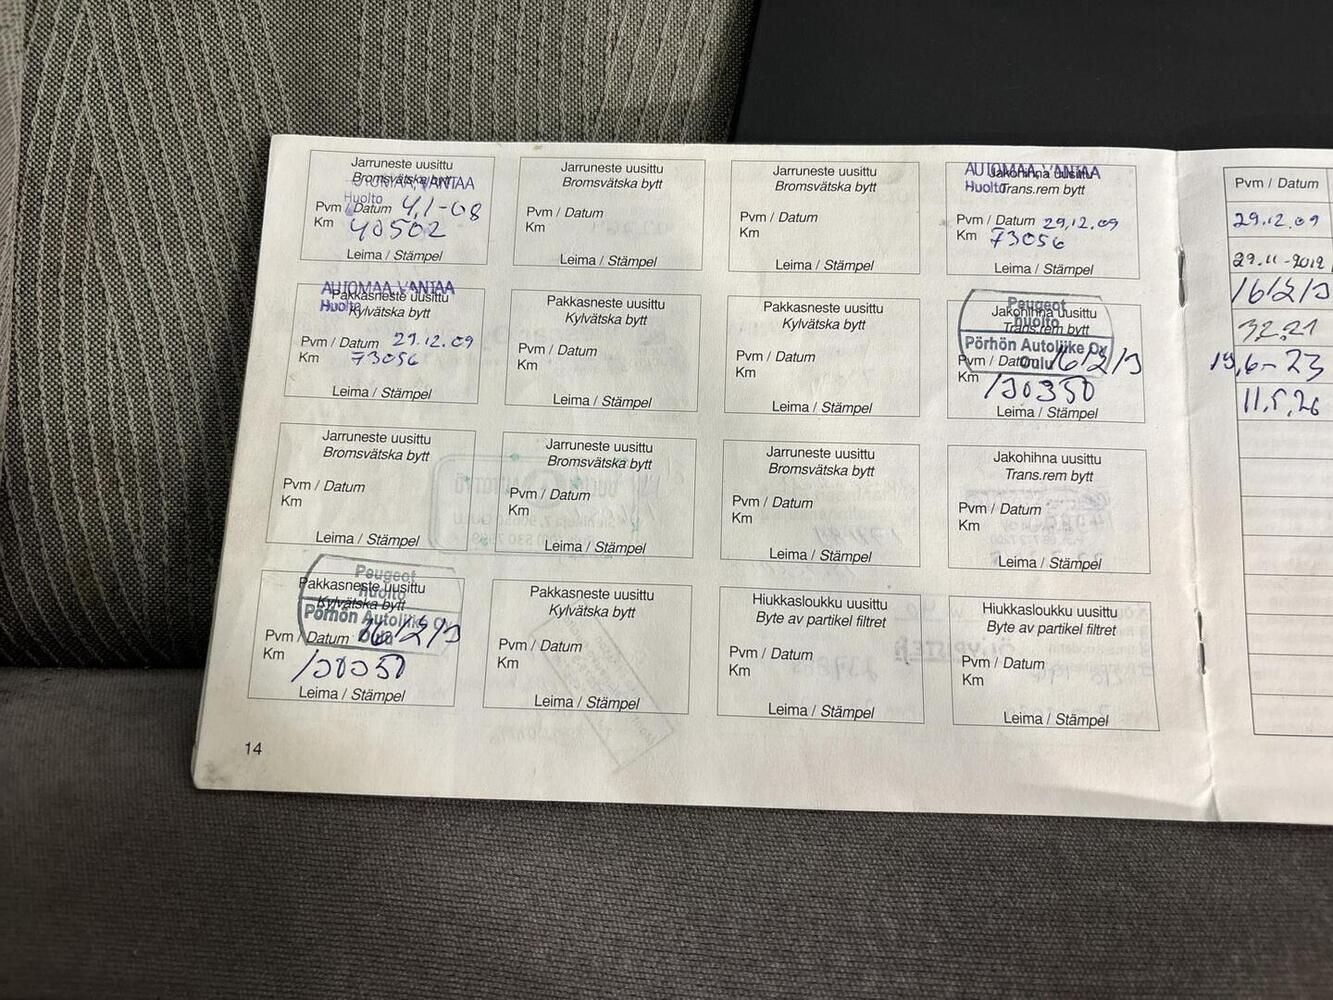 Jarruneste uusittu
Bromsvätska bytt
AUTOMAA, VANTAA
Huolto
Pvm / Datum 4,1-08
Km 40502
Leima / Stämpel
Jarruneste uusittu
Bromsvätska bytt
Pvm / Datum
Km
Leima / Stämpel
Jarruneste uusittu
Bromsvätska bytt
Pvm / Datum
Km
Leima / Stämpel
AUTOMAA, VANTAA
Jakohihna uusittu
Huolto
Trans.rem bytt
Pvm / Datum 29,12.09
Km 73056
Leima / Stämpel
AUTOMAA, VANTAA
Pakkasneste uusittu
Huolto
Kylvätska bytt
Pvm / Datum 29.12.09
Km 73056
Leima / Stämpel
Pakkasneste uusittu
Kylvätska bytt
Pvm / Datum
Km
Leima / Stämpel
Pakkasneste uusittu
Kylvätska bytt
Pvm / Datum
Km
Leima / Stämpel
Peugeot
Jakohihna uusittu
huolto
Trans.rem bytt
Pörhön Autoliike Oy
Oulu
Pvm / Datum 16/2/13
Km
Leima / Stämpel
Jarruneste uusittu
Bromsvätska bytt
Pvm / Datum
Km
Leima / Stämpel
Jarruneste uusittu
Bromsvätska bytt
Pvm / Datum
Km
Leima / Stämpel
Jarruneste uusittu
Bromsvätska bytt
Pvm / Datum
Km
Leima / Stämpel
Jakohihna uusittu
Trans.rem bytt
Pvm / Datum
Km
Leima / Stämpel
Peugeot
Pakkasneste uusittu
huolto
Kylvätska bytt
Pörhön Autoliike Oy
Oulu
Pvm / Datum 16/2/13
Km
Leima / Stämpel
Pakkasneste uusittu
Kylvätska bytt
Pvm / Datum
Km
Leima / Stämpel
Hiukkasloukku uusittu
Byte av partikel filtret
Pvm / Datum
Km
Leima / Stämpel
Hiukkasloukku uusittu
Byte av partikel filtret
Pvm / Datum
Km
Leima / Stämpel
14
Pvm / Datum
29.12.09
29.11-2012
16/2/13
19,6-23
11.5.26